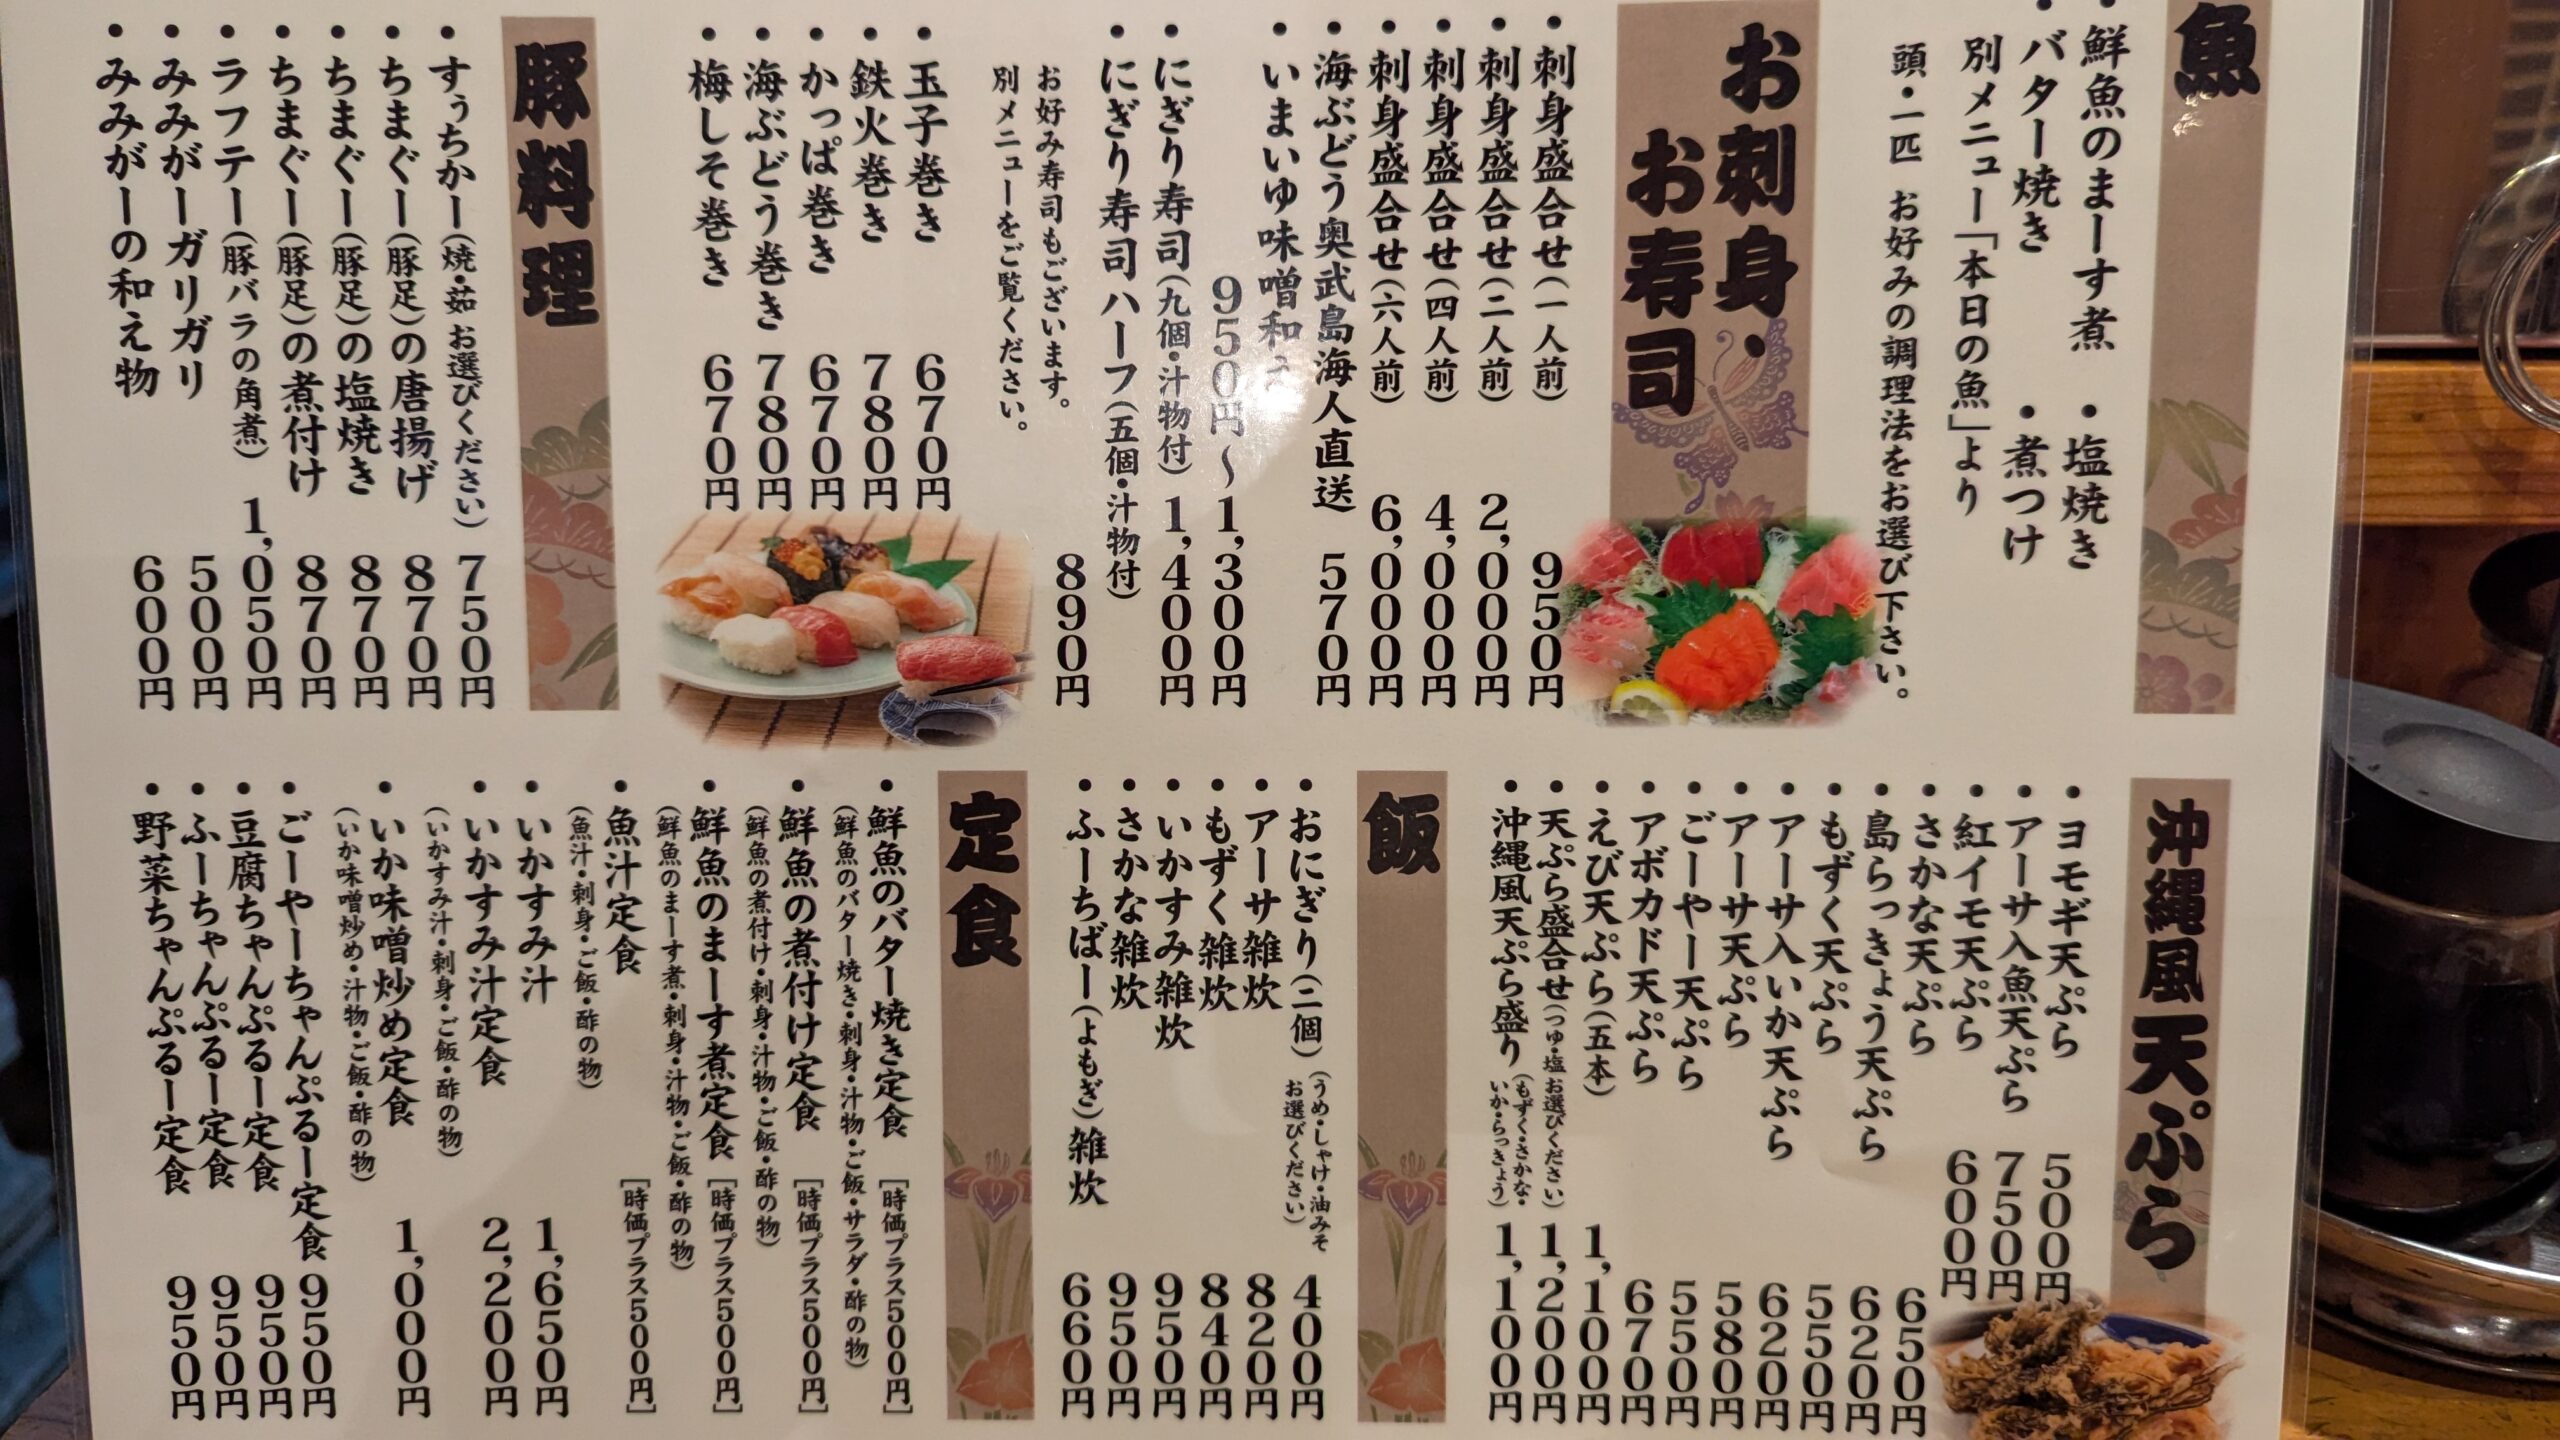 魚
・鮮魚のまーす煮 ・塩焼き
・バター焼き ・煮つけ
別メニュー「本日の魚」より
頭・一匹 お好みの調理法をお選び下さい。
お刺身・
お寿司
・刺身盛合せ(一人前) 950円
・刺身盛合せ(二人前) 2,000円
・刺身盛合せ(四人前) 4,000円
・刺身盛合せ(六人前) 6,000円
・海ぶどう奥武島海人直送 570円
・いまいゆ味噌和え
950円〜1,300円
・にぎり寿司(九個・汁物付) 1,400円
・にぎり寿司ハーフ(五個・汁物付)
890円
お好み寿司もございます。
別メニューをご覧ください。
・玉子巻き 670円
・鉄火巻き 780円
・かっぱ巻き 670円
・海ぶどう巻き 780円
・梅しそ巻き 670円
豚料理
・すぅちかー(焼・茹 お選びください) 750円
・ちまぐー(豚足)の唐揚げ 870円
・ちまぐー(豚足)の塩焼き 870円
・ちまぐー(豚足)の煮付け 870円
・ラフテー(豚バラの角煮) 1,050円
・みみがーガリガリ 500円
・みみがーの和え物 600円
沖縄風天ぷら
・ヨモギ天ぷら 500円
・アーサ入魚天ぷら 750円
・紅イモ天ぷら 600円
・さかな天ぷら 650円
・島らっきょう天ぷら 620円
・もずく天ぷら 550円
・アーサ入いか天ぷら 620円
・アーサ天ぷら 580円
・ごーやー天ぷら 550円
・アボカド天ぷら 670円
・えび天ぷら(五本) 1,100円
・天ぷら盛合せ(つゆ・塩お選びください) 1,200円
・沖縄風天ぷら盛り(もずく・さかな・いか・らっきょう) 1,100円
飯
・おにぎり(二個)(うめ・しゃけ・油みそ お選びください) 400円
・アーサ雑炊 820円
・もずく雑炊 840円
・いかすみ雑炊 950円
・さかな雑炊 950円
・ふーちばー(よもぎ)雑炊 660円
定食
・鮮魚のバター焼き定食 [時価プラス500円]
(鮮魚のバター焼き・刺身・汁物・ご飯・サラダ・酢の物)
・鮮魚の煮付け定食 [時価プラス500円]
(鮮魚の煮付け・刺身・汁物・ご飯・酢の物)
・鮮魚のまーす煮定食 [時価プラス500円]
(鮮魚のまーす煮・刺身・汁物・ご飯・酢の物)
・魚汁定食 [時価プラス500円]
(魚汁・刺身・ご飯・酢の物)
・いかすみ汁 1,650円
・いかすみ汁定食 2,200円
(いかすみ汁・刺身・ご飯・酢の物)
・いか味噌炒め定食 1,000円
(いか味噌炒め・汁物・ご飯・酢の物)
・ごーやーちゃんぷるー定食 950円
・豆腐ちゃんぷるー定食 950円
・ふーちゃんぷるー定食 950円
・野菜ちゃんぷるー定食 950円